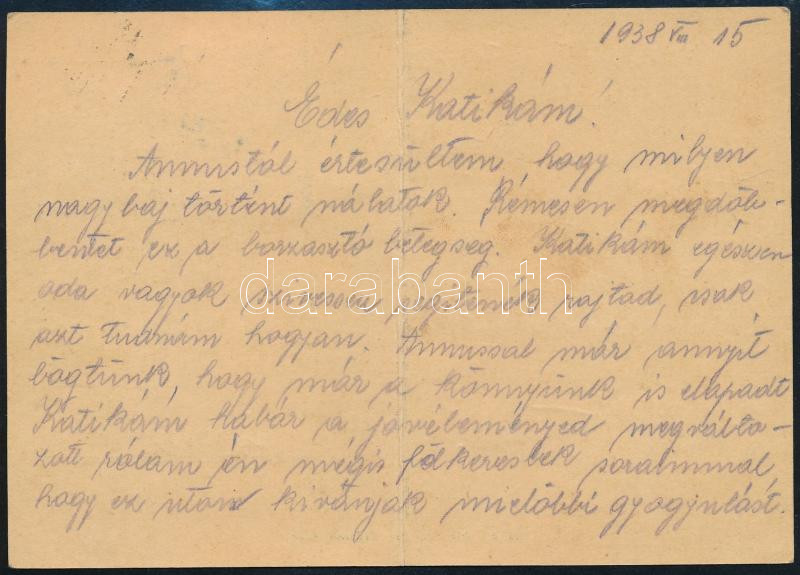 1938 VIII 15
Édes Katikám!
Annustól értesültem hogy milyen
nagy baj történt nálatok. Rémesen megdöb-
bentet ez a borzasztó betegseg. Katikám egészen
oda vagyok szivesen segítenék rajtad, csak
azt tudnám hogyan. Annussal már annyit
bőgtünk, hogy már a könnyünk is elapadt
Katikám habár a jóvéleményed megválto-
zott rólam én mégis felkereslek soraimmal
hogy ez uton kivánjak mielőbbi gyogyulást.
darabanth.com